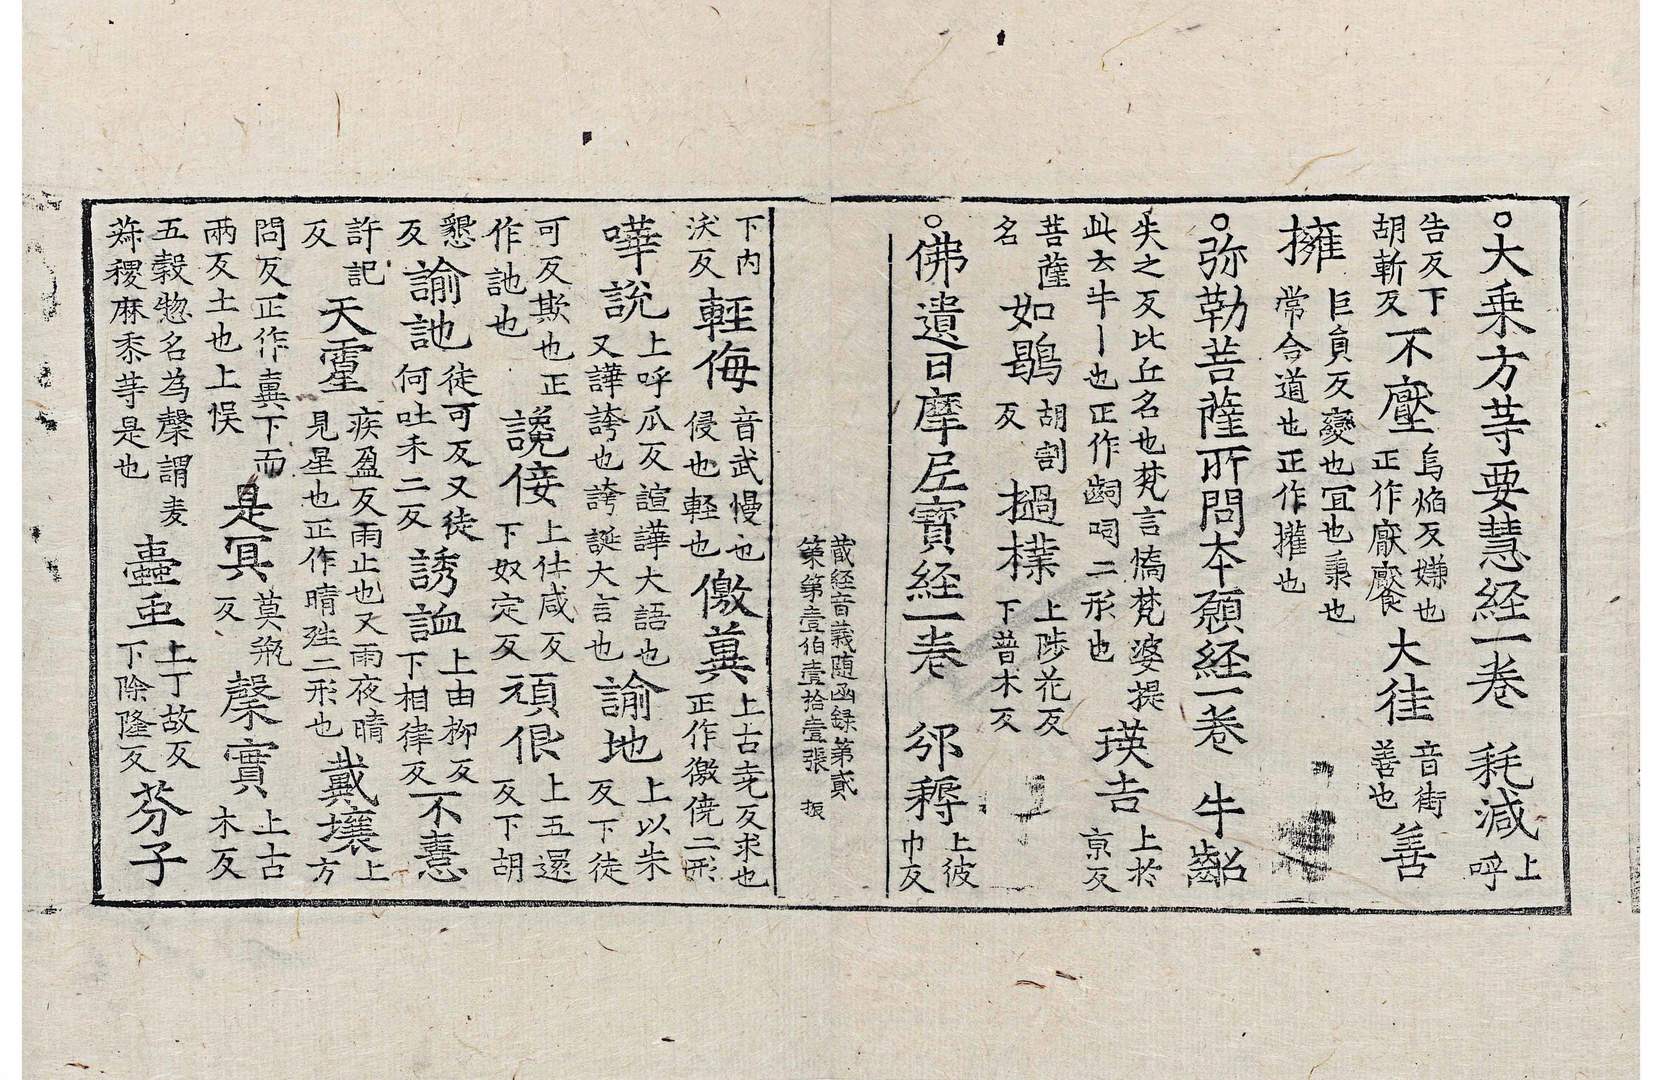 ○大乗方等要慧経一巻　耗減上呼
告反下胡斬反不壓烏焰反嫌也正作厭饜大徍音街善也善
擁巨負反變也冝也秉也常合道也正作攉也
○弥勒菩薩所問本願経一巻　牛齝
失之反比丘名也梵言憍梵婆提此云牛丨也正作齝呞二形也瑛吉上扵京反
菩薩名如鶡胡割反撾檏上陟花反下普木反
○佛遺日摩尼寶経一巻　邠耨上彼巾反
蔵経音義随函録第貳
第第壹伯壹拾壹張　振
下内沃反輕侮音武慢也侵也輕也儌冀上古尭反求也正作徼僥二形
嘩説上呼瓜反諠譁大語也又譁誇也誇誕大言也諭地上以朱反下徒
可反欺也正作訑也讒侫上仕咸反下奴定反頑佷上五還反下胡
懇反諭訑徒可反又徒何吐禾二反誘訹上由柳反下相律反不憙
許記反天霍疾盈反雨止也又雨夜晴見星也正作晴殅二形也戴壤上方
問反正作冀下而兩反土也上悮是冥莫瓶反馨實上古木反
五穀惣名為馨謂麦蔴稷麻黍等是也蠧䖝上丁故反下除隆反芬子